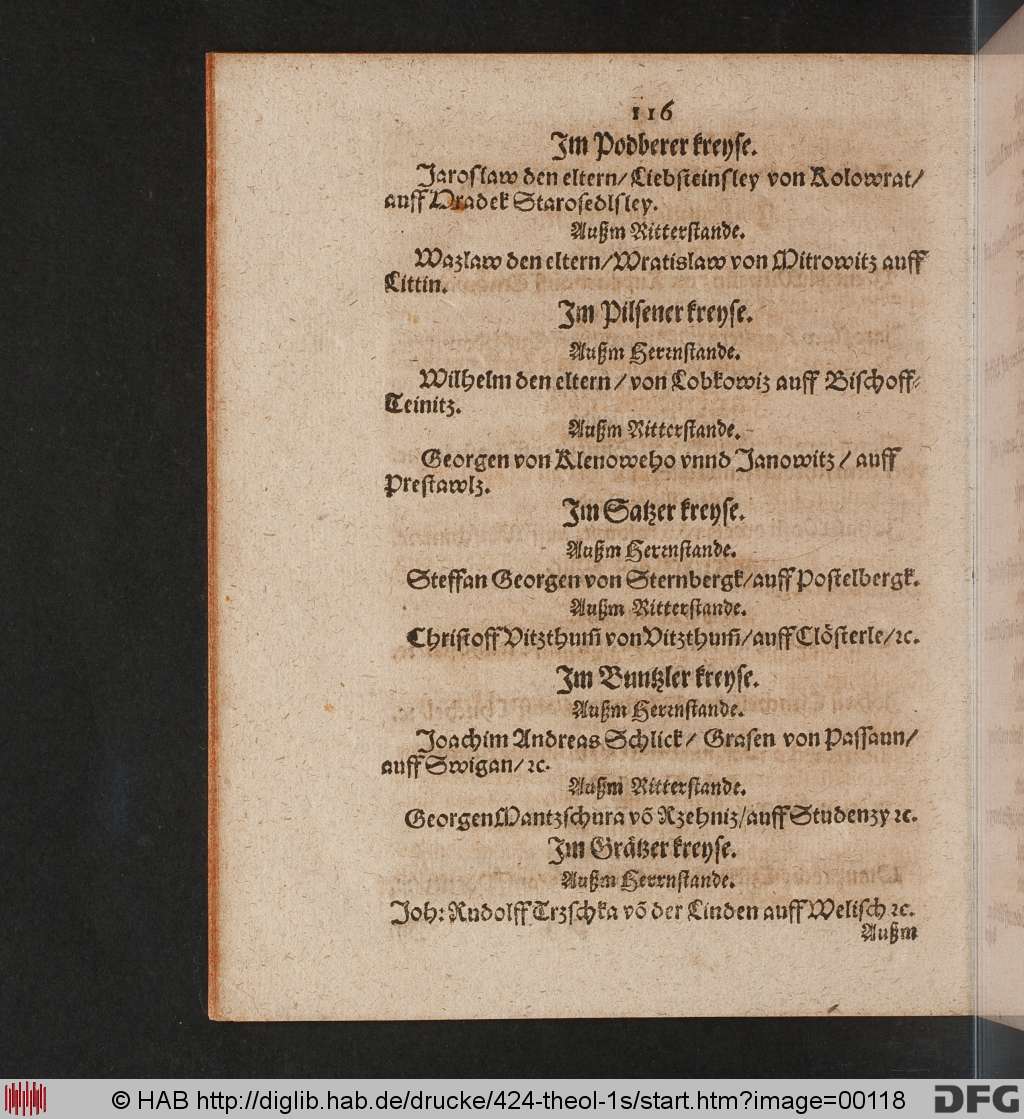 116
Im Podberer kreyse.
Jaroslaw den eltern/ Liebsteinsley von Kolowrat/
auff Hradek Starosedlsley.
Außm Ritterstande.
Wazlaw den eltern/Wratislaw von Mitrowitz auff
Littin.
Im Pilsener kreyse.
Außm Herrnstande.
Wilhelm den eltern/ von Lobkowiz auff Bischoff-
Teinitz.
Außm Ritterstande.
Georgen von Klenoweho vnnd Janowitz/ auff
Prestawlz.
Im Satzer kreyse.
Außm Herrnstande.
Steffan Georgen von Sternbergk/auff Postelbergk.
Außm Ritterstande.
Christoff Vitzthum̃ von Vitzthum̃/auff Clösterle/ꝛc.
Im Buntzler kreyse.
Außm Herrnstande.
Joachim Andreas Schlick/ Grafen von Passaun/
auff Swigan/ꝛc.
Außm Ritterstande.
Georgen Mantzschura võ Rzehniz/auff Studenzy ꝛc.
Im Grätzer kreyse.
Außm Herrnstande.
Joh: Rudolff Trzschka võ der Linden auff Welisch ꝛc.
Außm
© HAB http://diglib.hab.de/drucke/424-theol-1s/start.htm?image=00118
DFG